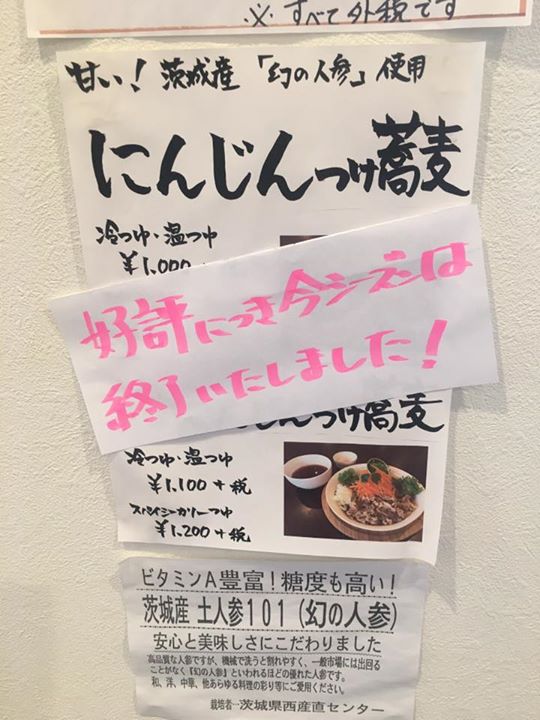 ※すべて外税です
甘い！茨城産「幻の人参」使用
にんじんつけ蕎麦
冷つゆ・温つゆ
¥1,000
好評につき今シーズンは
終了いたしました！
じんつけ蕎麦
冷つゆ・温つゆ
¥1,100+税
スパイシーカリーつゆ
¥1,200+税
ビタミンA豊富！糖度も高い！
茨城産 土人参101（幻の人参）
安心と美味しさにこだわりました
高品質な人参ですが、機械で洗うと割れやすく、一般市場には出回る
ことがなく『幻の人参』といわれるほどの優れた人参です。
和、洋、中華、他あらゆる料理の彩り等にご使用ください。
栽培者…茨城県西産直センター